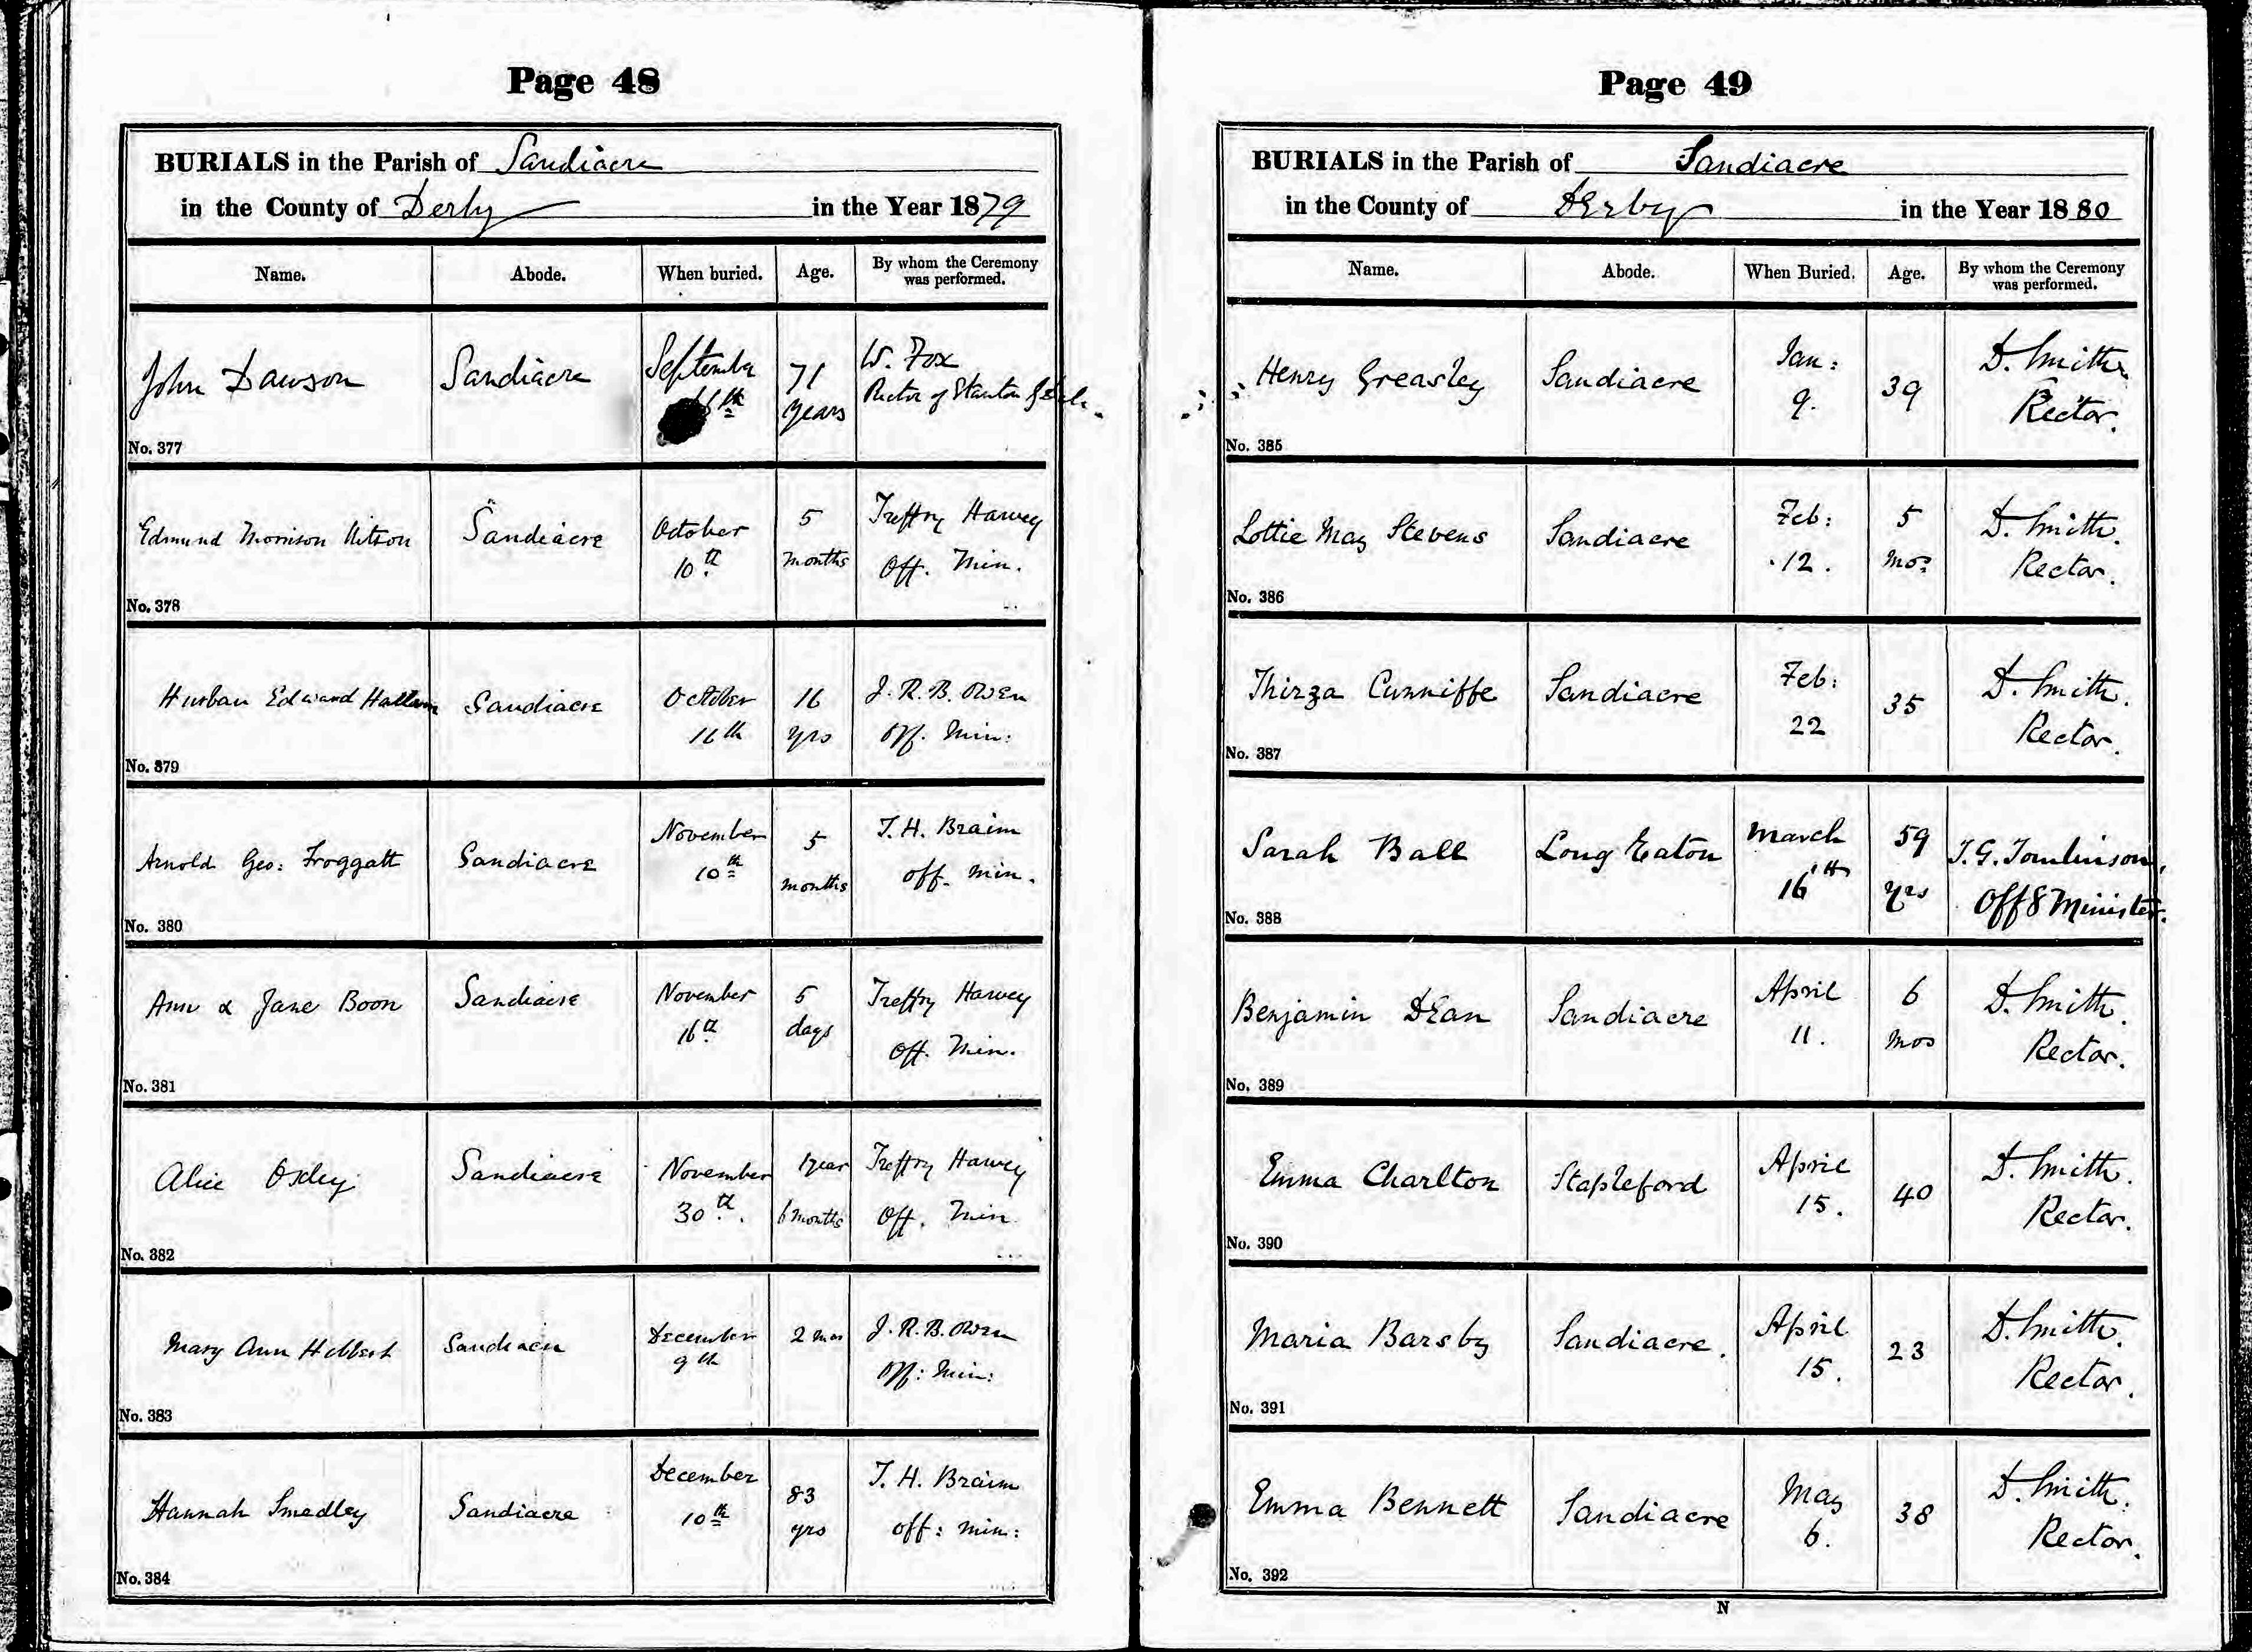 Page 48
BURIALS in the Parish of Sandiacre
in the County of Derby in the Year 1879
Name. Abode. When buried. Age. By whom the Ceremony was performed.
John Dawson Sandiacre September 71 W. Fox
6th years Rector of Stanton by Dale.
No. 377
Edmund Morrison Sandiacre October 5 Treffry Harvey
10th months Off. Min.
No. 378
Edward Hallam Sandiacre October 16 J. R. B. Owen
16th yrs Off. Min:
No. 379
Arnold Geo: Froggatt Sandiacre November 5 T. H. Braim
10th months off. min.
No. 380
Ann & Jane Boon Sandiacre November 5 Treffry Harvey
16th days Off. Min.
No. 381
Alice Oxley Sandiacre November 1 year Treffry Harvey
30th. 6 months Off. Min
No. 382
Mary Ann Hebbert Sandiacre December 2 mos J. R. B. Owen
9th Off: Min:
No. 383
Hannah Smedley Sandiacre December 83 T. H. Braim
10th yrs off: min:
No. 384
Page 49
BURIALS in the Parish of Sandiacre
in the County of Derby in the Year 1880
Name. Abode. When Buried. Age. By whom the Ceremony was performed.
Henry Greasley Sandiacre Jan: 39 D. Smith.
9. Rector.
No. 385
Lottie May Stevens Sandiacre Feb: 5 D. Smith.
12. mos Rector.
No. 386
Thirza Cunniffe Sandiacre Feb: 35 D. Smith.
22 Rector.
No. 387
Sarah Ball Long Eaton March 59 T. G. Tomlinson,
16th yrs Offg Minister.
No. 388
Benjamin Dean Sandiacre April 6 D. Smith.
11. mos Rector.
No. 389
Emma Charlton Stapleford April 40 D. Smith.
15. Rector.
No. 390
Maria Barsby Sandiacre. April 23 D. Smith.
15. Rector.
No. 391
Emma Bennett Sandiacre May 38 D. Smith.
6. Rector.
No. 392
N